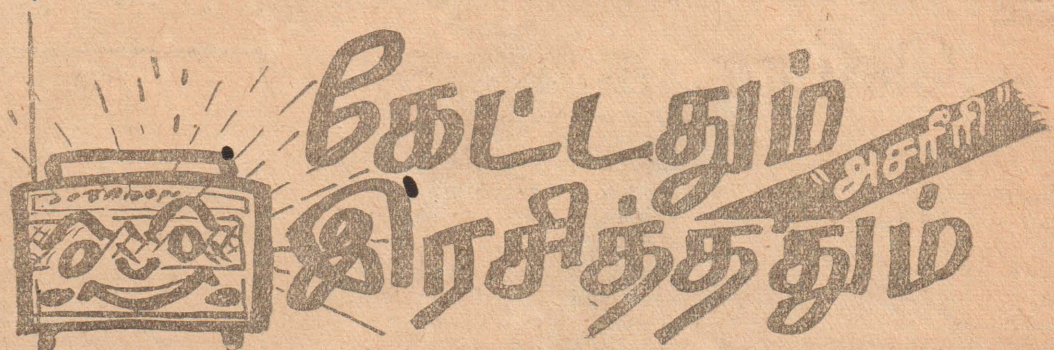 கேட்டதும்
இரசித்ததும்
"அசரீரி"